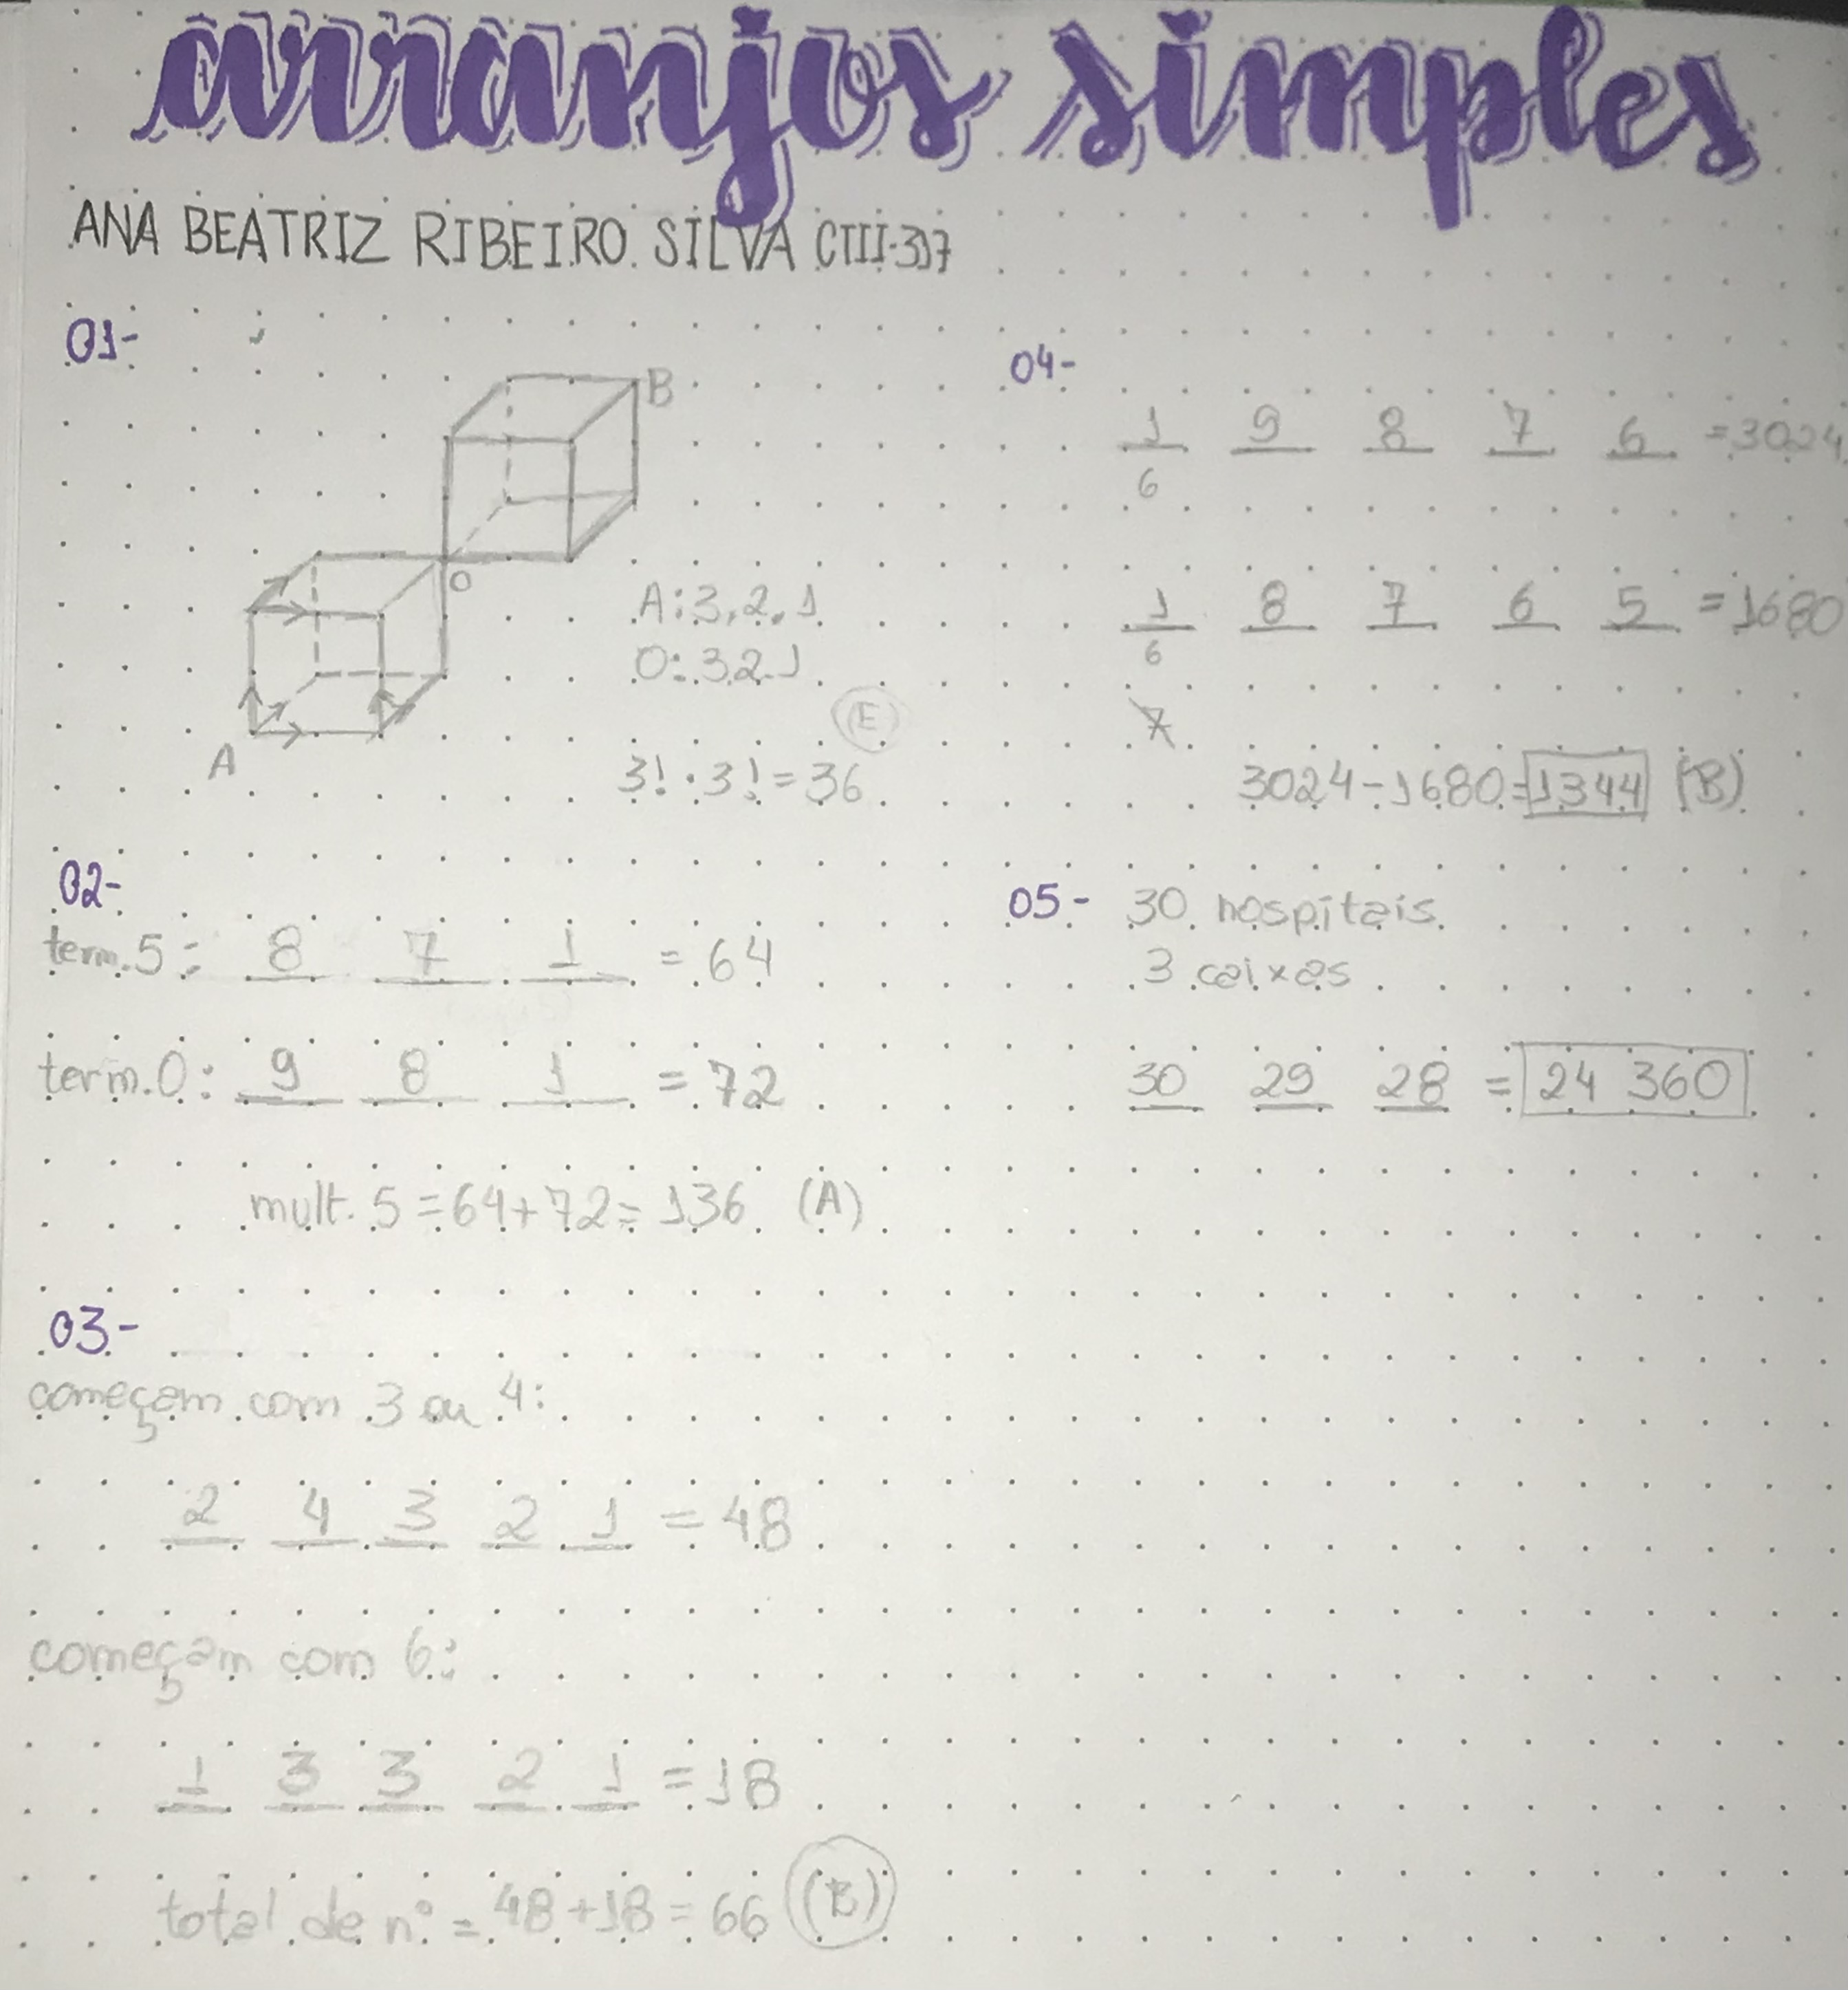 arranjos simples
ANA BEATRIZ RIBEIRO SILVA CTII-317
01-
B
O
A
A: 3, 2, 1
O: 3 2 1
(E)
3! · 3! = 36
02-
term. 5: 8 7 1 = 64
term. 0: 9 8 1 = 72
mult. 5 = 64 + 72 = 136 (A)
03-
começam com 3 ou 4:
2 4 3 2 1 = 48
começam com 6:
1 3 3 2 1 = 18
total de nº = 48 + 18 = 66 (B)
04-
1 9 8 7 6 = 3024
6
1 8 7 6 5 = 1680
6
7
3024 - 1680 = 1344 (B)
05- 30 hospitais
3 caixas
30 29 28 = 24 360